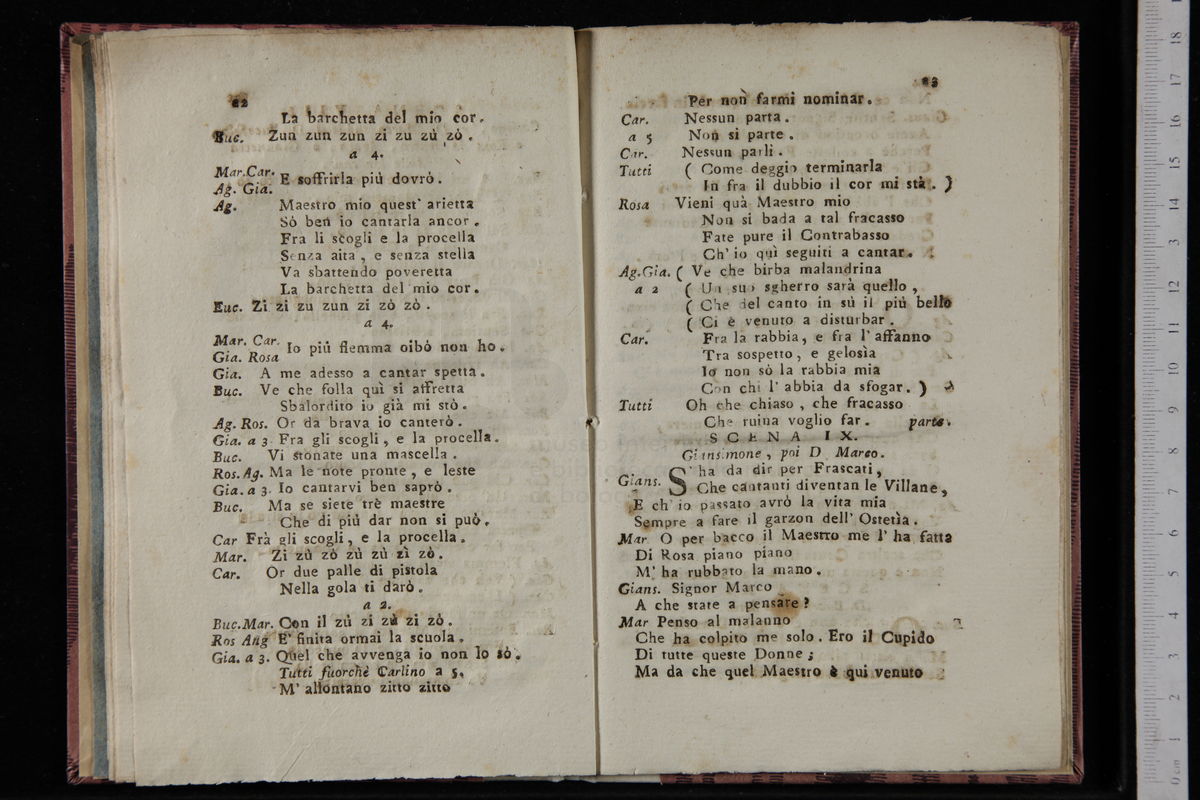 22
La barchetta del mio cor.
Buc. Zun zun zun zi zu zù zò.
a 4.
Mar. Car.
Ag. Gia. E soffrirla più dovrò.
Ag. Maestro mio quest' arietta
Sò ben io cantarla ancor.
Fra li scogli e la procella
Senza aita, e senza stella
Va sbattendo poveretta
La barchetta del mio cor.
Buc. Zi zi zu zun zi zò zò.
a 4.
Mar. Car.
Gia. Rosa Io più flemma oibò non ho.
Gia. A me adesso a cantar spetta.
Buc. Ve che folla quì si affretta
Sbalordito io già mi stò.
Ag. Ros. Or da brava io canterò.
Gia. a 3 Fra gli scogli, e la procella.
Buc. Vi stonate una mascella.
Ros. Ag. Ma le note pronte, e leste
Gia. a 3. Io cantarvi ben saprò.
Buc. Ma se siete trè maestre
Che di più dar non si può.
Car Frà gli scogli, e la procella.
Mar. Zi zù zò zù zù zì zò.
Car. Or due palle di pistola
Nella gola ti darò.
a 2.
Buc. Mar. Con il zù zi zù zi zò.
Ros Ang E' finita ormai la scuola.
Gia. a 3. Quel che avvenga io non lo sò.
Tutti fuorchè Carlino a 5.
M' allontano zitto zitto
23
Per non farmi nominar.
Car. Nessun parta.
a 5 Non si parte.
Car. Nessun parli.
Tutti ( Come deggio terminarla
In fra il dubbio il cor mi stà. )
Rosa Vieni quà Maestro mio
Non si bada a tal fracasso
Fate pure il Contrabasso
Ch' io quì seguiti a cantar.
Ag. Gia. ( Ve che birba malandrina
a 2 ( Un suo sgherro sarà quello,
( Che del canto in sù il più bello
( Ci è venuto a disturbar.
Car. Fra la rabbia, e fra l' affanno
Tra sospetto, e gelosìa
Io non sò la rabbia mia
Con chi l' abbia da sfogar. )
Tutti Oh che chiaso, che fracasso
Che ruina voglio far. parte.
SCENA IX.
Giansimone, poi D. Marco.
Gians. S' ha da dir per Frascati,
Che cantanti diventan le Villane,
E ch' io passato avrò la vita mia
Sempre a fare il garzon dell' Ostetìa.
Mar O per bacco il Maestro me l' ha fatta
Di Rosa piano piano
M' ha rubbato la mano.
Gians. Signor Marco
A che state a pensare?
Mar Penso al malanno
Che ha colpito me solo. Ero il Cupido
Di tutte queste Donne;
Ma da che quel Maestro è qui venuto